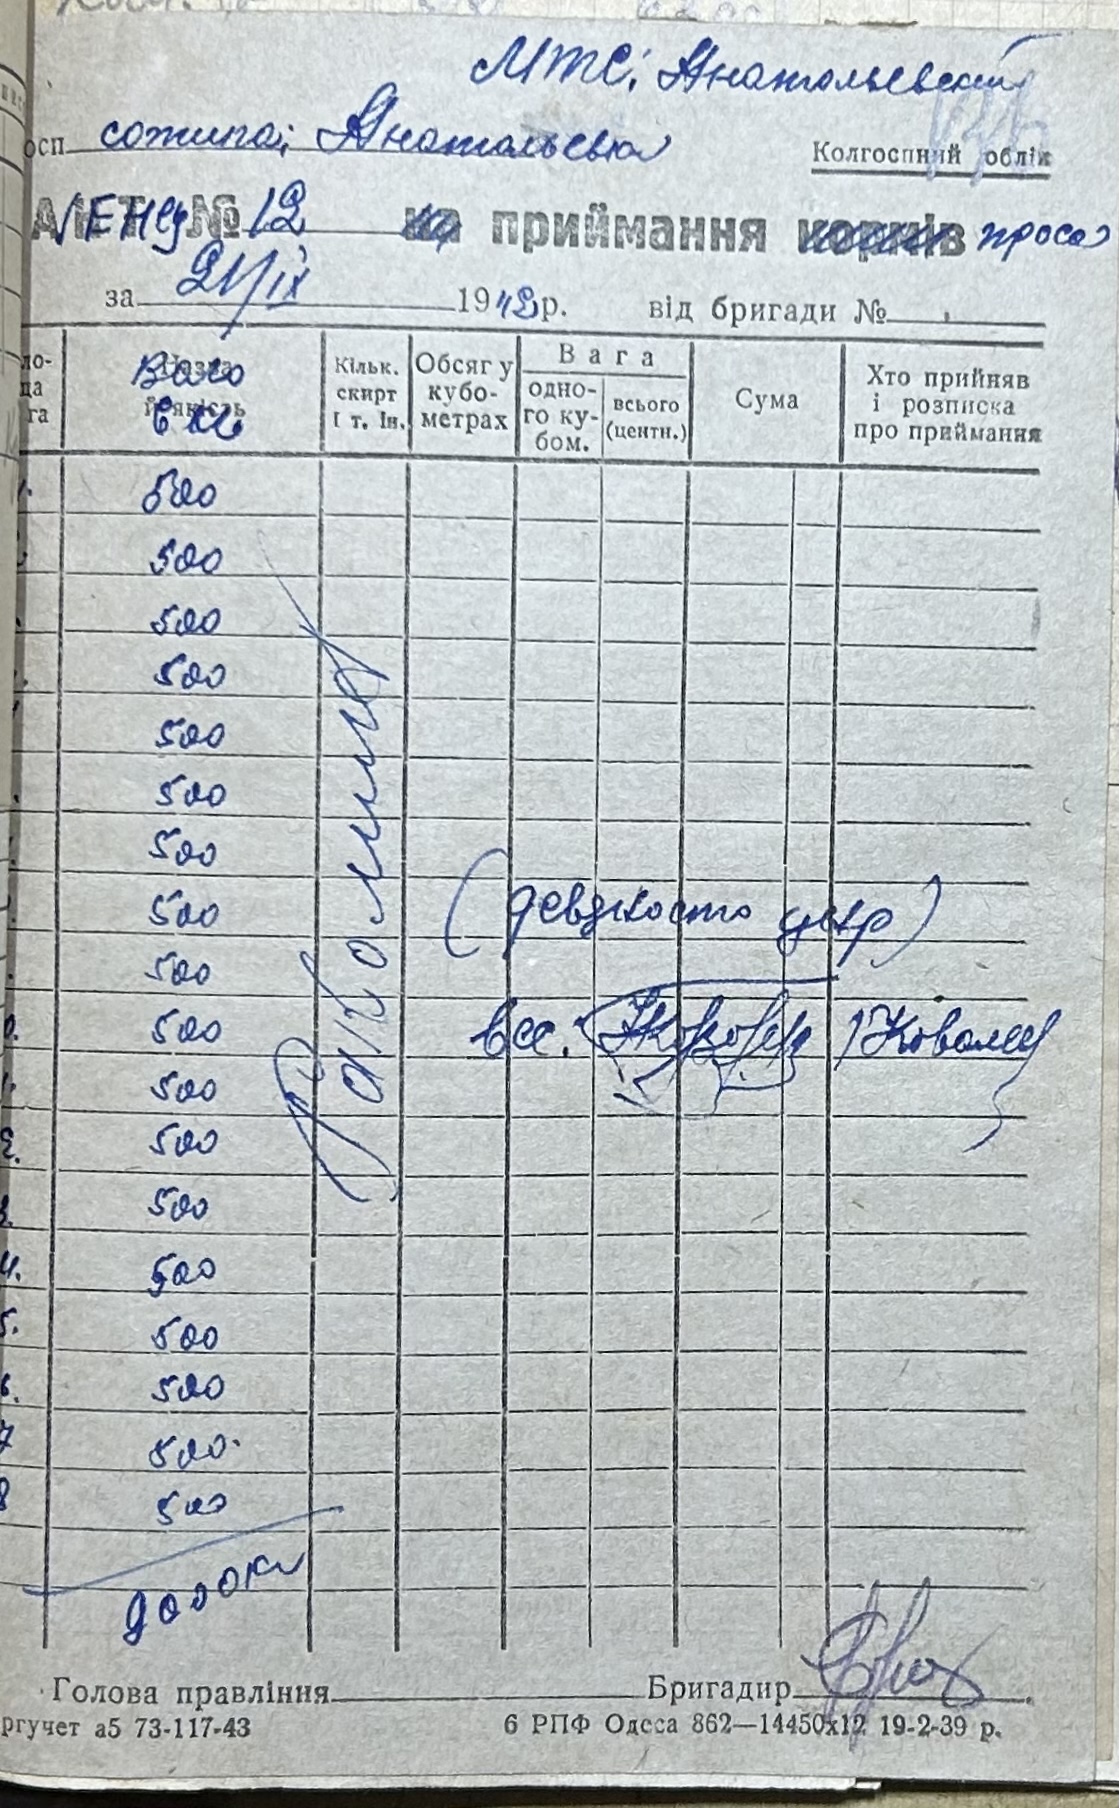 МТС; Анатольевский
осп. сотипа; Анатольевка
Колгоспний облік
№ 12 на приймання кормів проса
за 21/IX 1942 р. від бригади №
Вага
в кг
Назва
й якість
Кільк. скирт і т. ін.
Обсяг у кубо-метрах
Вага
одно-го ку-бом.
всього (центн.)
Сума
Хто прийняв і розписка про приймання
500
500
500
500
500
500
500
500
500
0. 500
500
2. 500
3. 500
4. 500
5. 500
6. 500
7 500.
8 500
9000 кг
(девяносто цнр)
Вес. Ковалец
Голова правління Бригадир
ргучет а5 73-117-43 6 РПФ Одеса 862—14450х12 19-2-39 р.